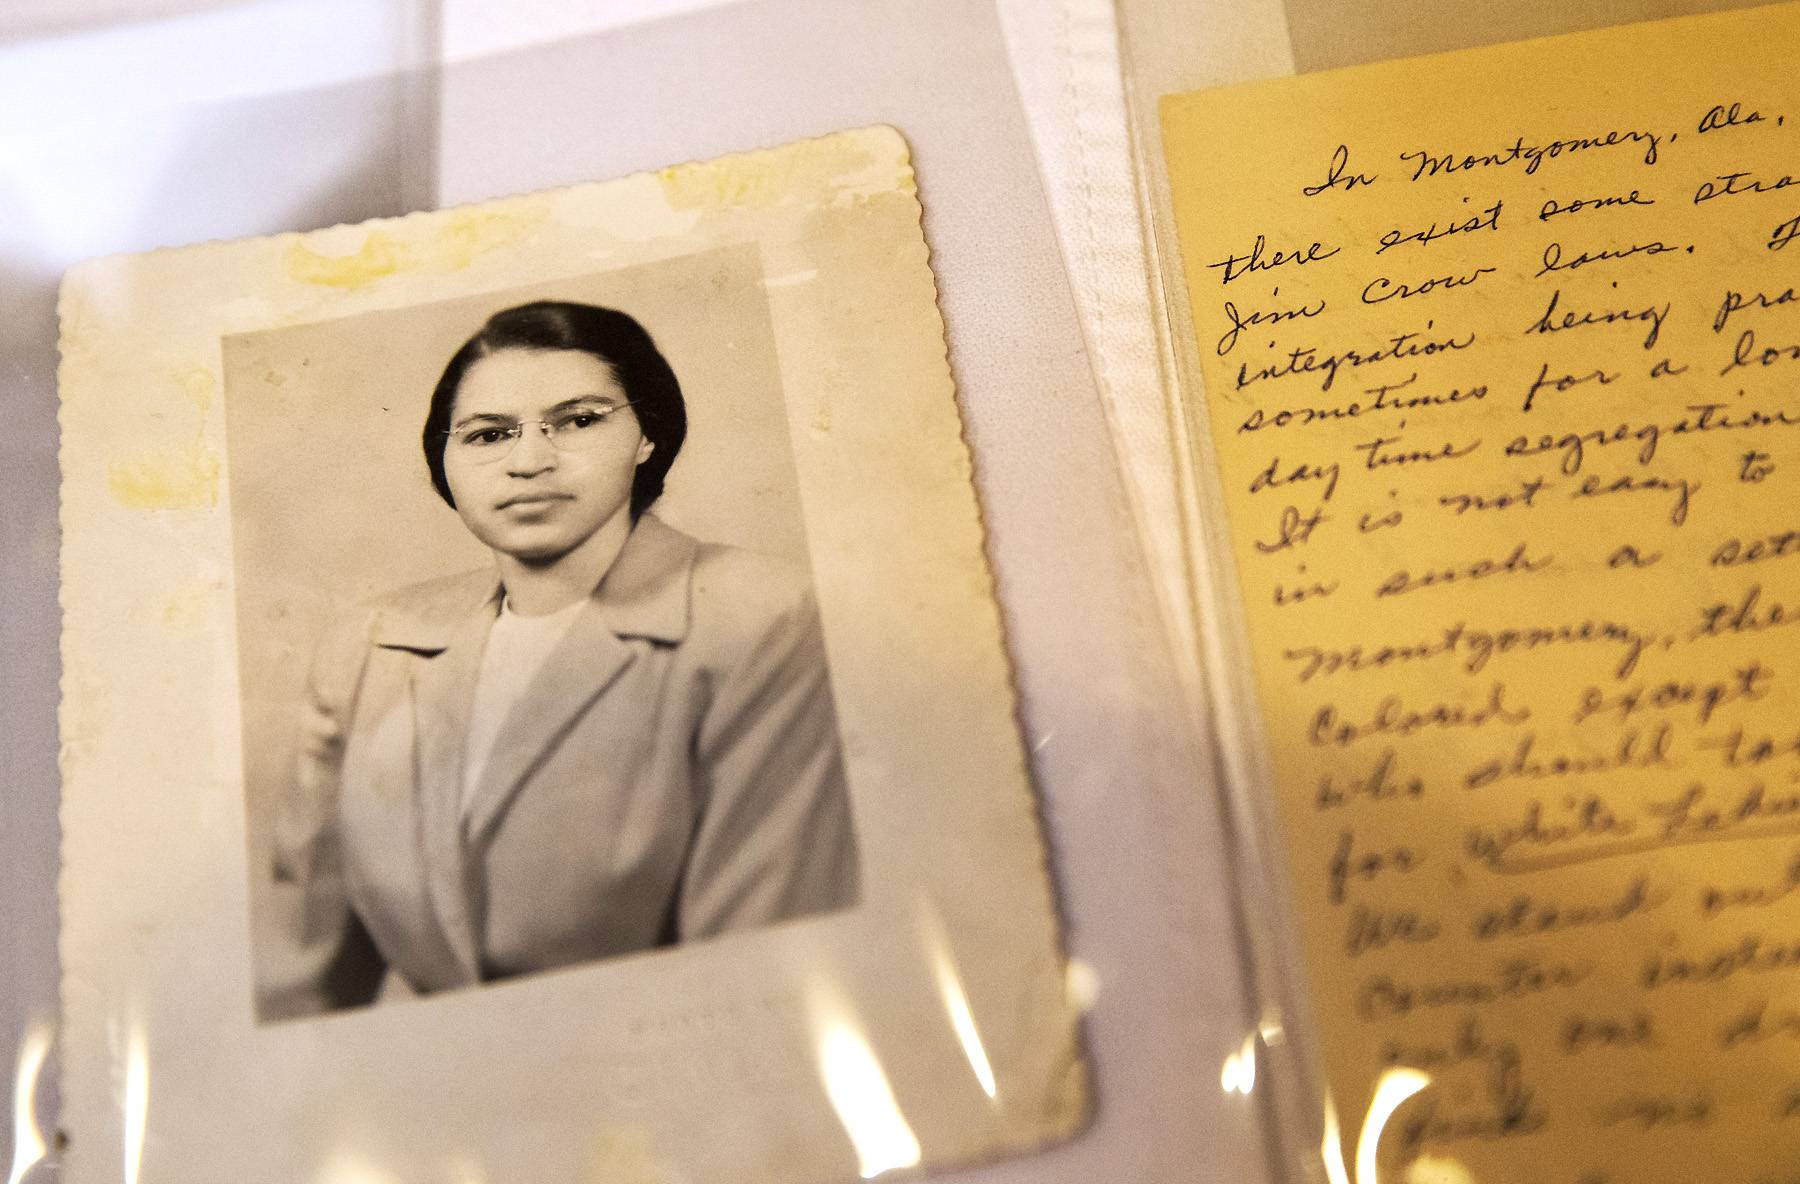 In Montgomery, Ala,
there exist some stra
Jim Crow laws.
integration being pra
sometimes for a lon
day time segregation
It is not easy to
in such a set
Montgomery, the
Colored except
who should ta
for white
We stand out
Counter instea
only one d